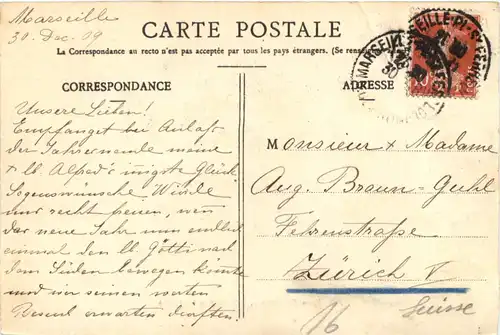 Marseille
30. Dec. 09
CARTE POSTALE
La Correspondance au recto n'est pas acceptée par tous les pays étrangers. (Se rensei
CORRESPONDANCE
ADRESSE
Unsere Lieben!
Empfanget bei Anlaß
der Jahreswende meine
+ lb. Alfred's innigste Glück
Segenswünsche Würde
uns recht freuen, wen
das neue Jahr nun endlich
einmal den lb. Götti nach
dem Süden bewegen könnte
und wir seinen werten
Besuch erwarten dürften!
Monsieur & Madame
Aug. Braun-Guhl
Fehrenstraße
Zürich V
Suisse
16